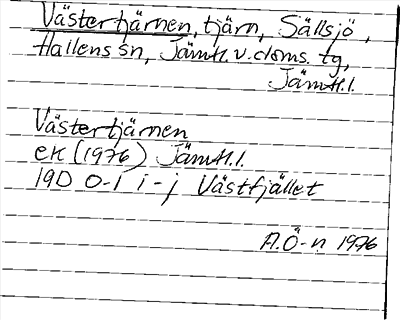 Västertjärnen, tjärn, Sällsjö,
Hallens sn, Jämtl. v. doms. tg,
Jämtl. l.
Västertjärnen
ek (1976) Jämtl. l.
19D 0-1 i-j Västfjället
A.Ö-n 1976